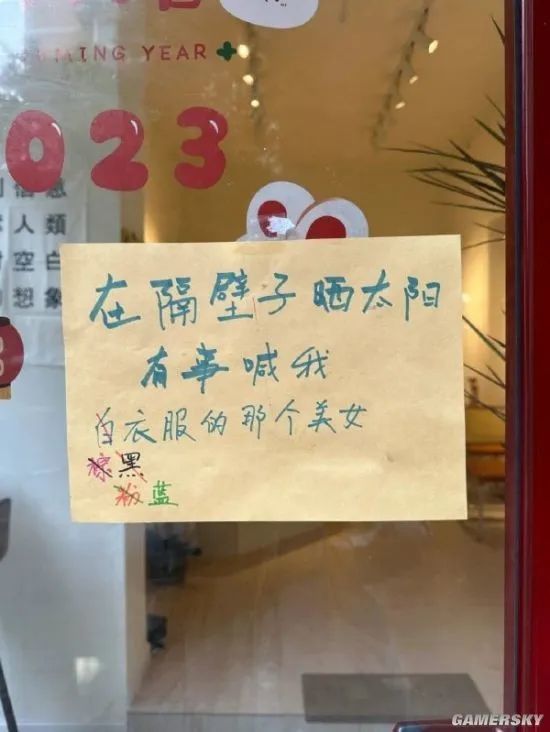 MING YEAR
2023
人類
空白
想象
在隔壁子晒太阳
有事喊我
白衣服的那个美女
棕黑
粉蓝
GAMERSKY